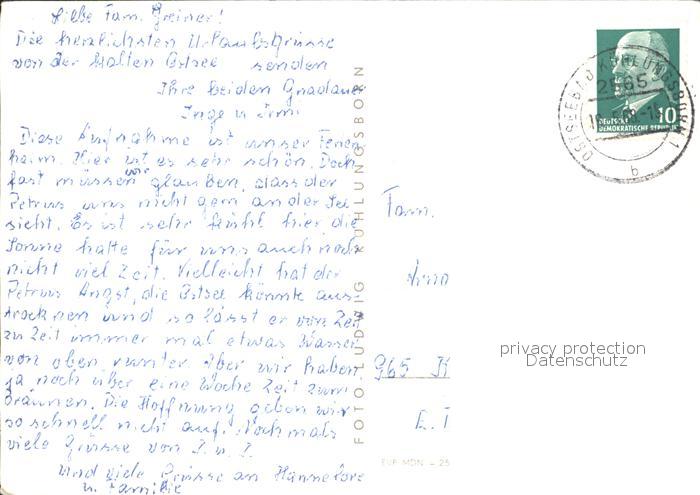 Liebe Fam. Greiner!
Die herzlichsten Urlaubsgrüsse
von der kalten Ostsee senden
Ihre beiden Gnadauer
Inge u.
Diese Aufnahme ist unser Ferien
heim. Hier ist es sehr schön. Doch
fast müssen wir glauben, dass der
Petrus uns nicht gern an der See
sieht. Es ist sehr kühl hier die
Sonne hatte für uns auch noch
nicht viel Zeit. Vielleicht hat der
Petrus Angst, die Ostsee könnte aus-
trocknen und so lässt er von Zeit
zu Zeit immer mal etwas Wasser
von oben runter. Aber wir haben
ja noch über eine Woche Zeit zum
bräunen. Die Hoffnung geben wir
so schnell nicht auf. Nochmals
viele Grüsse von I. u. I.
Und viele Grüsse an Hannelore
u. Familie
FOTO LUDWIG KÜHLUNGSBORN
OSTSEEBAD KÜHLUNGSBORN 1
2565
b
10
DEUTSCHE
DEMOKRATISCHE REPUBLIK
Fam.
965
privacy protection
Datenschutz
EVP MDN – 25